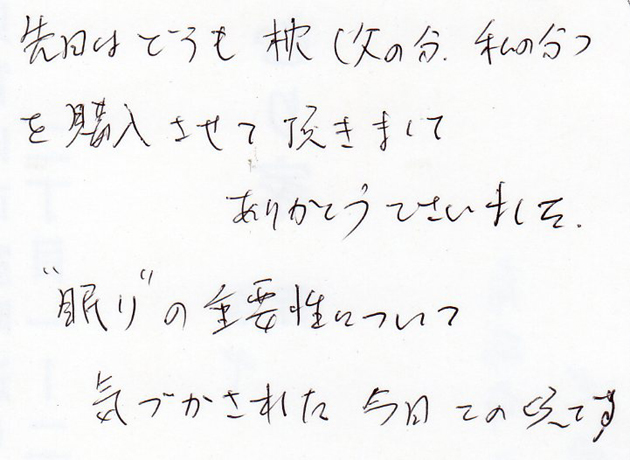 先日はどうも 枕(父の分.私の分)
を購入させて頂きまして
ありがとうございました.
"眠り"の重要性について
気づかされた 今日この頃です